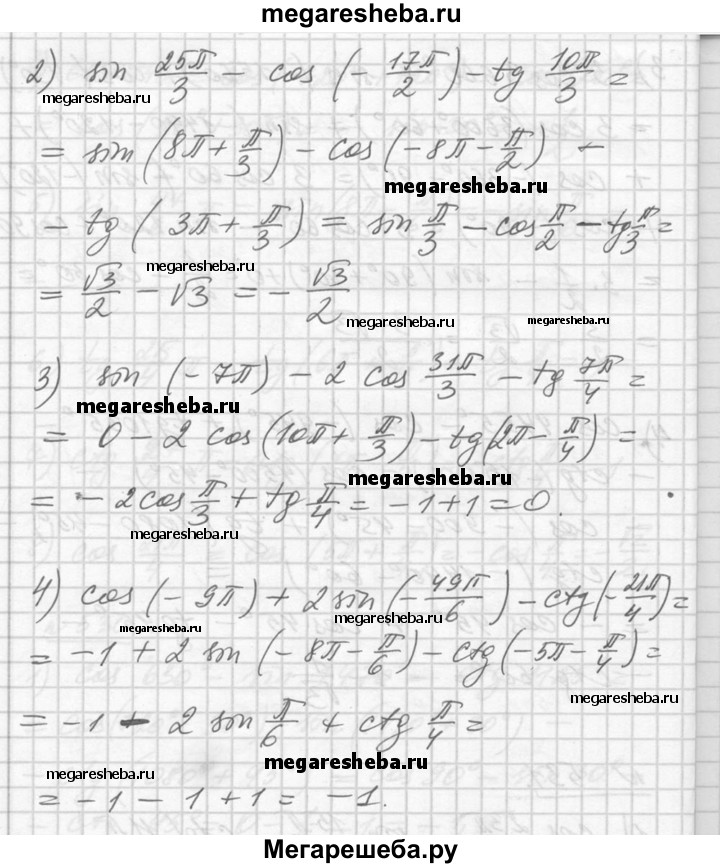 megaresheba.ru
2) sin 25π/3 - cos (- 17π/2) - tg 10π/3 =
megaresheba.ru
= sin (8π + π/3) - cos (-8π - π/2) -
megaresheba.ru
- tg (3π + π/3) = sin π/3 - cos π/2 - tg π/3 =
megaresheba.ru
= √3/2 - √3 = - √3/2
megaresheba.ru megaresheba.ru
3) sin (-7π) - 2 cos 31π/3 - tg 7π/4 =
megaresheba.ru
= 0 - 2 cos (10π + π/3) - tg (2π - π/4) =
megaresheba.ru
= - 2 cos π/3 + tg π/4 = -1 + 1 = 0.
megaresheba.ru
4) cos (-9π) + 2 sin (- 49π/6) - ctg (- 21π/4) =
megaresheba.ru megaresheba.ru
= -1 + 2 sin (-8π - π/6) - ctg (-5π - π/4) =
megaresheba.ru
= -1 - 2 sin π/6 + ctg π/4 =
megaresheba.ru
megaresheba.ru
= -1 - 1 + 1 = -1.
Мегарешеба.ру